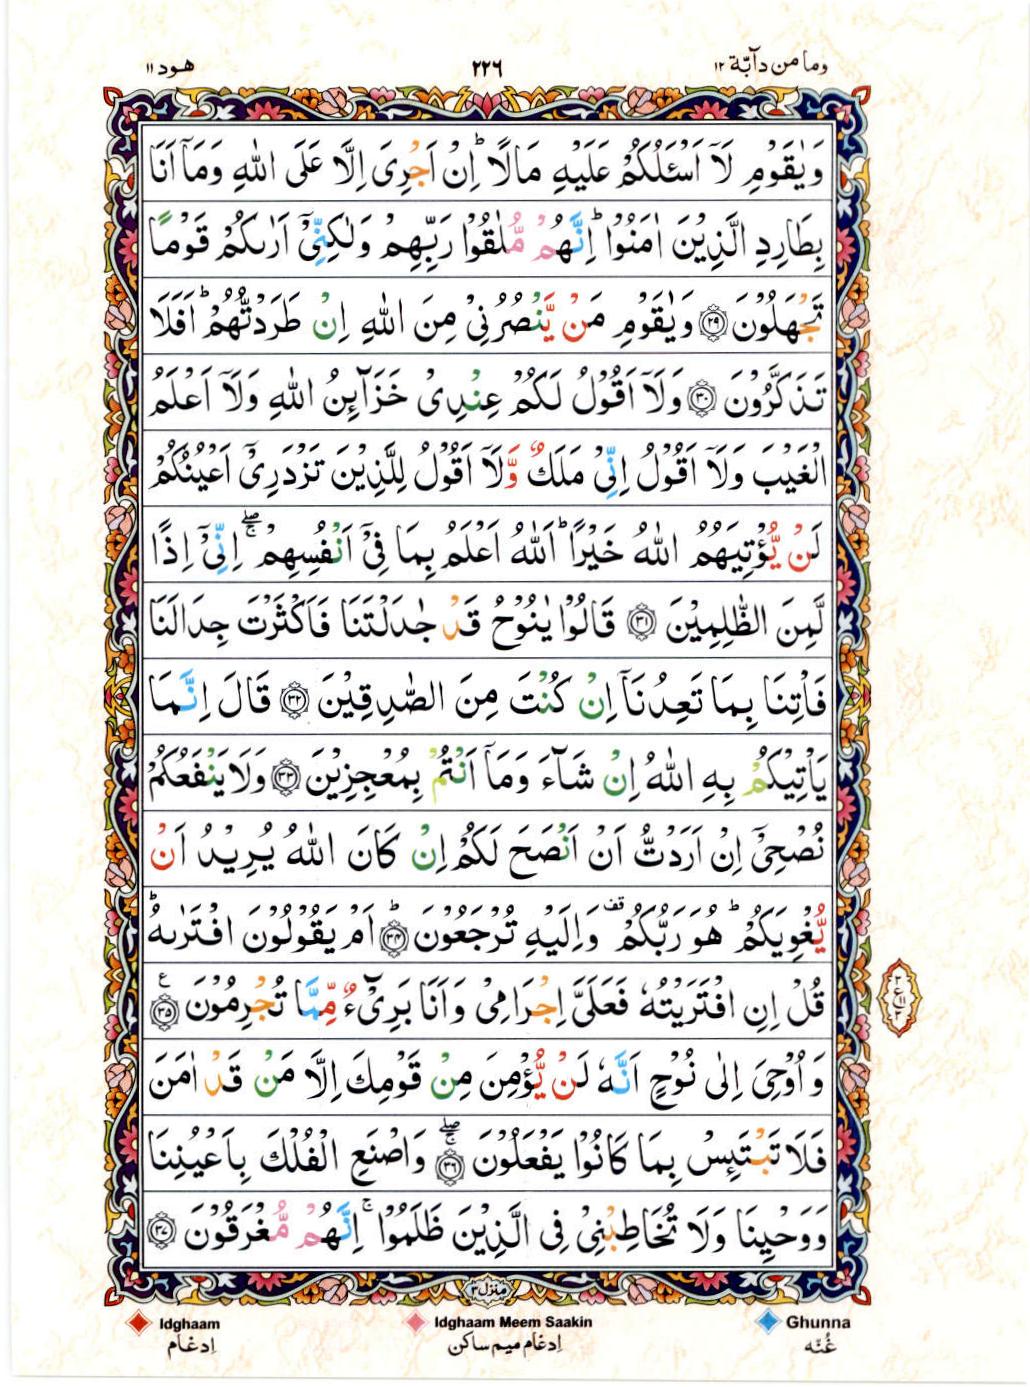 وما من دآبة ١٢
٢٢٦
هود ١١
وَيٰقَوْمِ لَاۤ اَسْـَٔلُكُمْ عَلَيْهِ مَالًا ؕ اِنْ اَجْرِىَ اِلَّا عَلَى اللّٰهِ وَمَاۤ اَنَا
بِطَارِدِ الَّذِيْنَ اٰمَنُوْا ؕ اِنَّهُمْ مُّلٰقُوْا رَبِّهِمْ وَلٰكِنِّىْۤ اَرٰىكُمْ قَوْمًا
تَجْهَلُوْنَ ﴿٢٩﴾ وَيٰقَوْمِ مَنْ يَّنْصُرُنِىْ مِنَ اللّٰهِ اِنْ طَرَدْتُّهُمْ ؕ اَفَلَا
تَذَكَّرُوْنَ ﴿٣٠﴾ وَلَاۤ اَقُوْلُ لَكُمْ عِنْدِىْ خَزَآئِنُ اللّٰهِ وَلَاۤ اَعْلَمُ
الْغَيْبَ وَلَاۤ اَقُوْلُ اِنِّىْ مَلَكٌ وَّلَاۤ اَقُوْلُ لِلَّذِيْنَ تَزْدَرِىْۤ اَعْيُنُكُمْ
لَنْ يُّؤْتِيَهُمُ اللّٰهُ خَيْرًا ؕ اَللّٰهُ اَعْلَمُ بِمَا فِىْۤ اَنْفُسِهِمْ ۖۚ اِنِّىْۤ اِذًا
لَّمِنَ الظّٰلِمِيْنَ ﴿٣١﴾ قَالُوْا يٰنُوْحُ قَدْ جٰدَلْتَنَا فَاَكْثَرْتَ جِدَالَنَا
فَاْتِنَا بِمَا تَعِدُنَاۤ اِنْ كُنْتَ مِنَ الصّٰدِقِيْنَ ﴿٣٢﴾ قَالَ اِنَّمَا
يَاْتِيْكُمْ بِهِ اللّٰهُ اِنْ شَآءَ وَمَاۤ اَنْتُمْ بِمُعْجِزِيْنَ ﴿٣٣﴾ وَلَا يَنْفَعُكُمْ
نُصْحِىْۤ اِنْ اَرَدْتُّ اَنْ اَنْصَحَ لَكُمْ اِنْ كَانَ اللّٰهُ يُرِيْدُ اَنْ
يُّغْوِيَكُمْ ؕ هُوَ رَبُّكُمْ قف وَاِلَيْهِ تُرْجَعُوْنَ ؕ﴿٣٤﴾ اَمْ يَقُوْلُوْنَ افْتَرٰىهُ ؕ
قُلْ اِنِ افْتَرَيْتُهٗ فَعَلَىَّ اِجْرَامِىْ وَاَنَا بَرِىْٓءٌ مِّمَّا تُجْرِمُوْنَ ﴿٣٥﴾ ع
وَاُوْحِىَ اِلٰى نُوْحٍ اَنَّهٗ لَنْ يُّؤْمِنَ مِنْ قَوْمِكَ اِلَّا مَنْ قَدْ اٰمَنَ
فَلَا تَبْتَئِسْ بِمَا كَانُوْا يَفْعَلُوْنَ ۖۚ﴿٣٦﴾ وَاصْنَعِ الْفُلْكَ بِاَعْيُنِنَا
وَوَحْيِنَا وَلَا تُخَاطِبْنِىْ فِى الَّذِيْنَ ظَلَمُوْا ۚ اِنَّهُمْ مُّغْرَقُوْنَ ﴿٣٧﴾
منزل ٣
Idghaam
Idghaam Meem Saakin
Ghunna
اِدغام
اِدغام میم ساکن
غُنّه